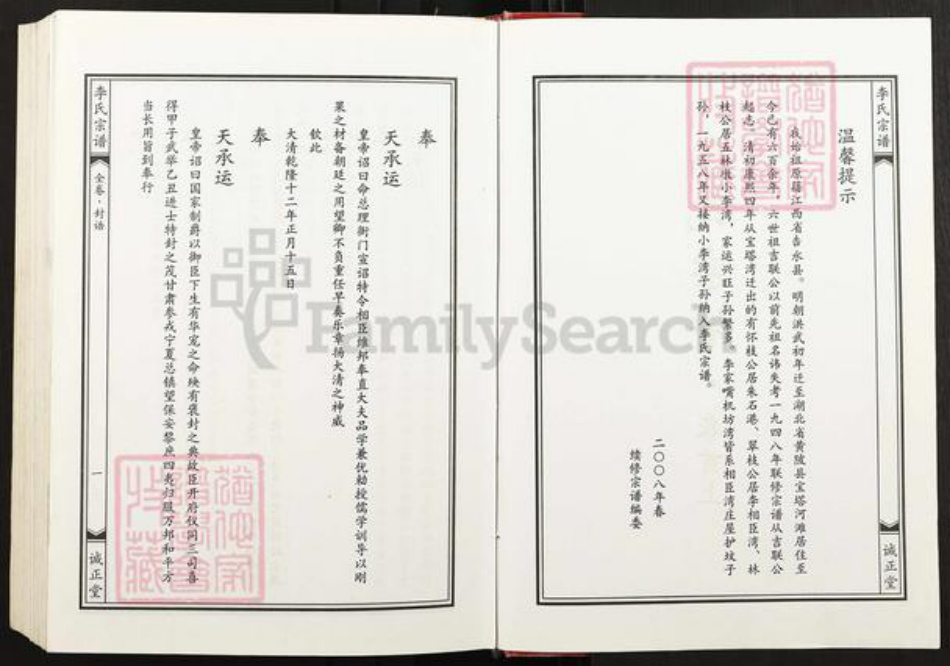 李氏宗谱
诚正堂
温馨提示
我始祖原籍江西省吉水县。明朝洪武初年迁至湖北省黄陂县宝塔河滩居住至
今已有六百余年，六世祖言联公以前先祖名讳失考一九四八年联修宗谱从言联公
起志。清初康熙四年从宝塔湾迁出的有怀枝公居朱石港、翠枝公居李相臣湾、林
枝公居五林墩小李湾，家运兴旺子孙繁多。李家嘴机坊湾皆系相臣湾庄屋护坟子
孙，一九五八年又接纳小李湾子孙纳入李氏宗谱。
二〇〇八年春
续修宗谱编委
李氏宗谱
全卷·封诰
一
诚正堂
奉
天承运
皇帝诏曰命总理衙门宣诏特令相臣维邦奉直大夫品学兼优勅授儒学训导以刚
果之材备朝廷之用望卿不负重任早奏乐章扬大清之神威
钦此
大清乾隆十二年正月十五日
奉
天承运
皇帝诏曰国家制爵以御臣下生有华宠之命殁有褒封之典故臣开府仪同三司喜
得甲子武举乙丑进士特封之茂甘肃参戎宁夏总镇望保安黎庶四夷归服万邦和平方
当长用旨到奉行
FamilySearch